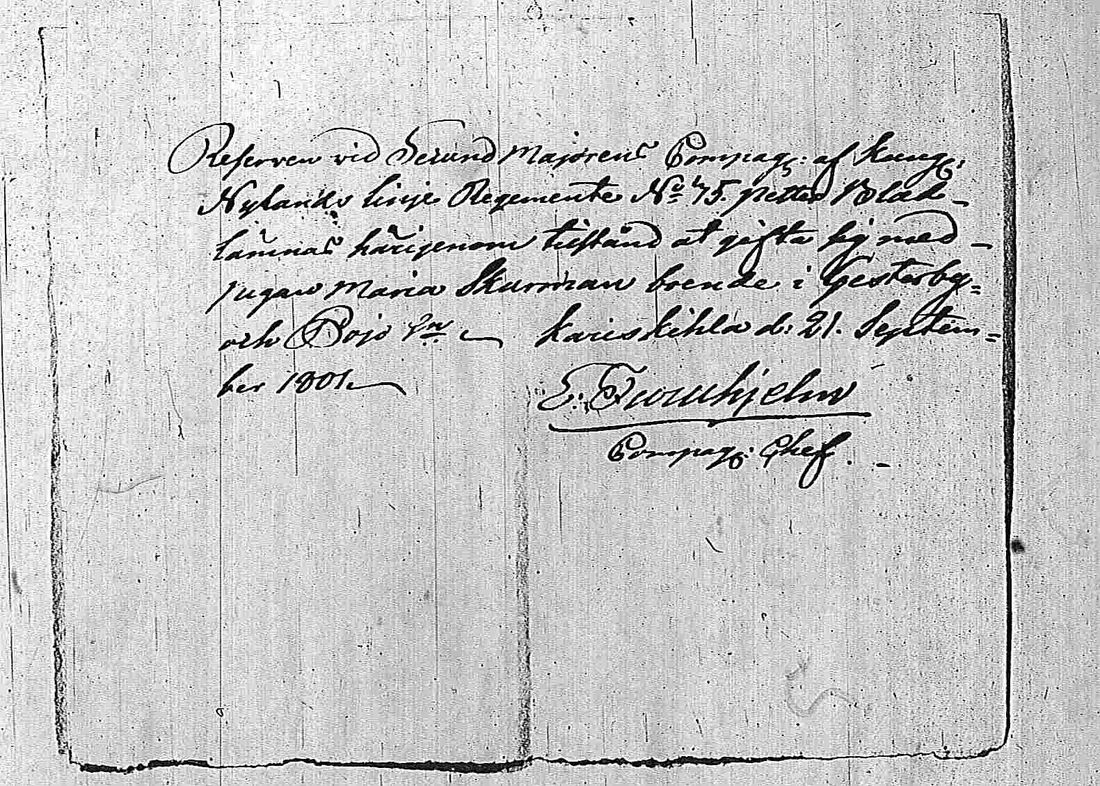 Reserven vid Secund Majorens Compag: af Kungl:
Nylands linje Regemente No 75. Petter Blad
lämnas härigenom tillstånd at gifta sig med
pigan Maria Skarman boende i Gesterby
och Pojo Sn Kariskihla d: 21. Septem=
ber 1801.
E.
Compag: Chef.